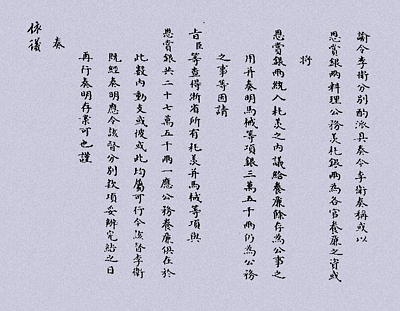 諭令李衛分別酌派具奏今李衛奏稱或以
恩賞銀兩料理公務羨耗銀兩為各官養廉之資或
將
恩賞銀兩統入耗羨之內議給養廉餘存為公事之
用并奏明馬械等項銀三萬五千兩仍為公務
之事等因請
旨臣等查得浙省所有耗羨并馬械等項與
恩賞銀共二十七萬五十兩一應公務養廉俱在於
此數內動支或彼或此均屬可行令該督李衛
既經奏明應令該督分別款項妥辦完結之日
再行奏明存案可也謹
奏
依議